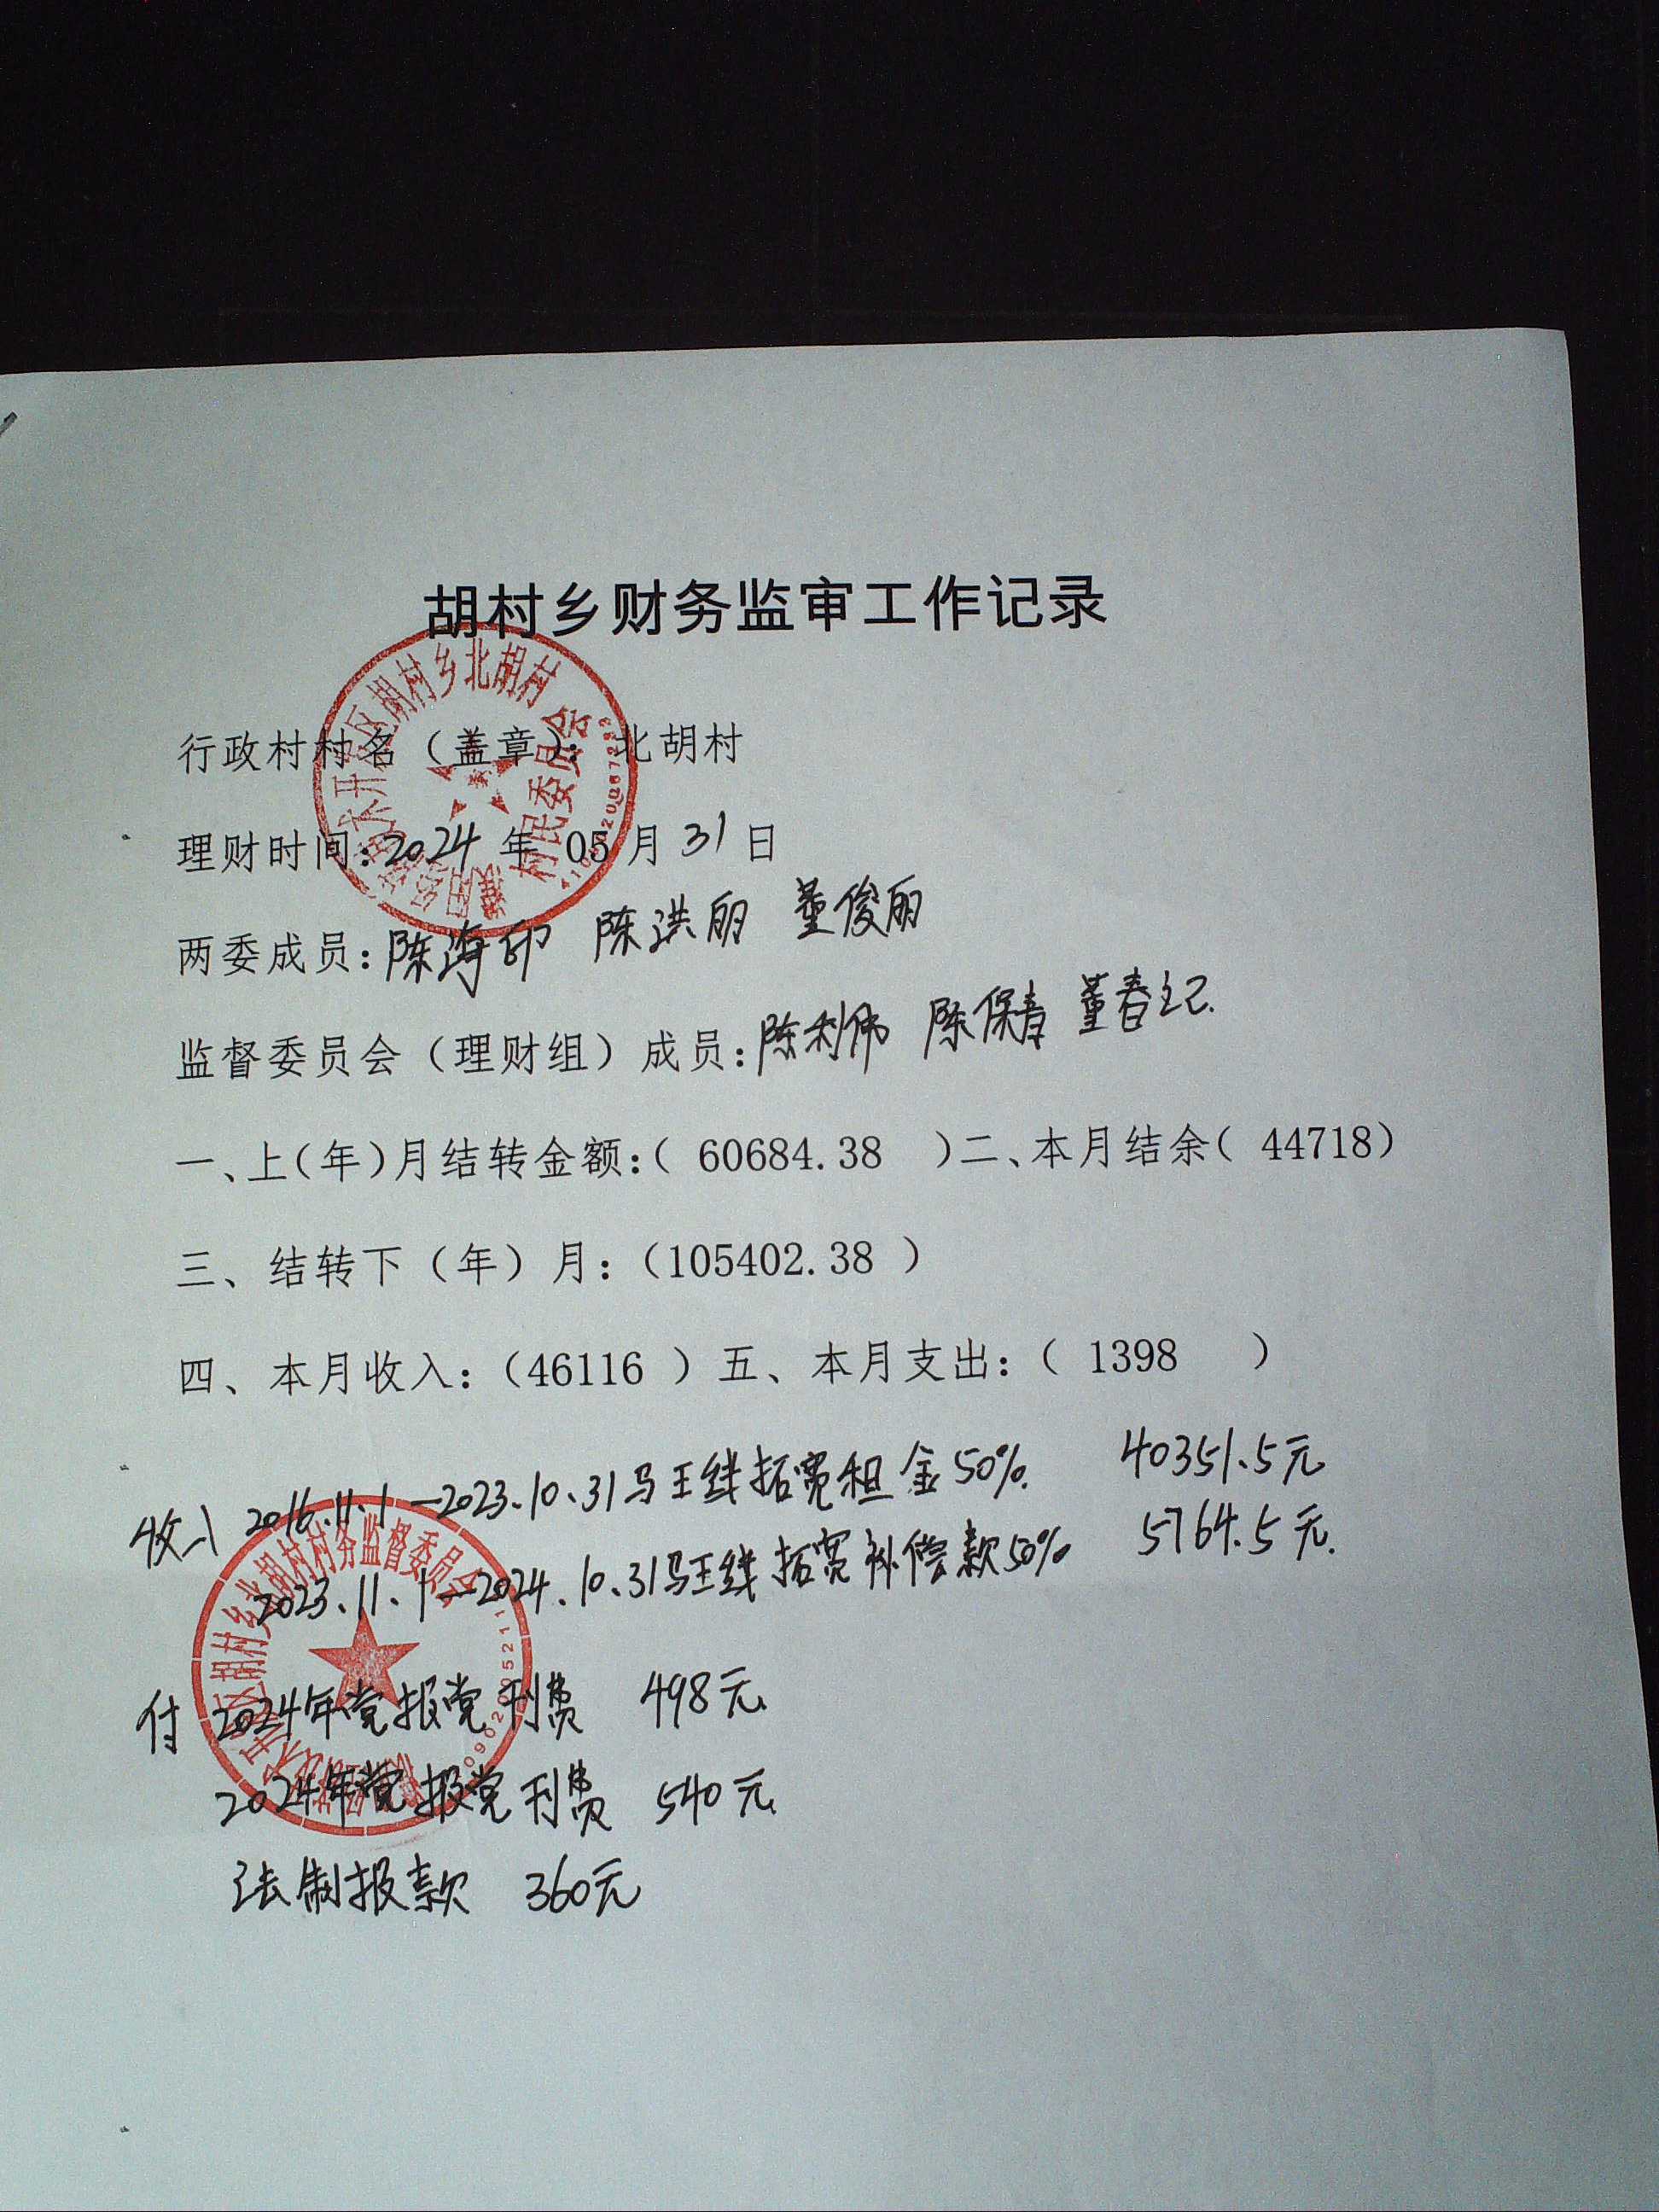 胡村乡财务监审工作记录
行政村村名（盖章）：北胡村
理财时间：2024年 05月31日
两委成员：陈海印 陈洪丽 董俊丽
监督委员会（理财组）成员：陈利伟 陈保春 董春记
一、上(年)月结转金额：( 60684.38 )二、本月结余( 44718)
三、结转下（年）月：（105402.38 ）
四、本月收入：（46116 ）五、本月支出：（ 1398 ）
收入 2016.11.1—2023.10.31马王线拓宽租金50% 40351.5元
2023.11.1—2024.10.31马王线拓宽补偿款50% 5764.5元.
付 2024年党报党刊费 498元
2024年党报党刊费 540元
法制报款 360元
胡村乡北胡村
村民委员会
胡村乡北胡村村务监督委员会